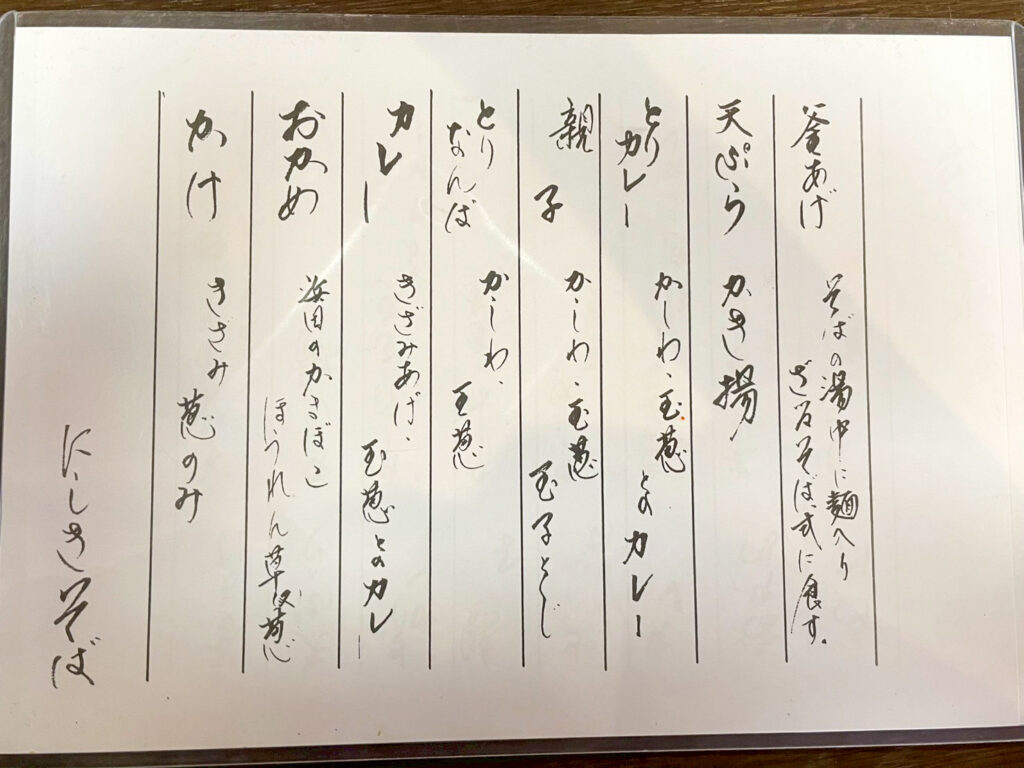 釜あげ
そばの湯中に麺入り
ざるそば式に食す。
天ぷら
かき揚
とりカレー
かしわ、玉葱とのカレー
親子
かしわ、玉葱
玉子とじ
とりなんば
かしわ、玉葱
カレー
きざみあげ、玉葱とのカレー
おかめ
浜田のかまぼこ
ほうれん草
かけ
きざみ葱のみ
にしきそば